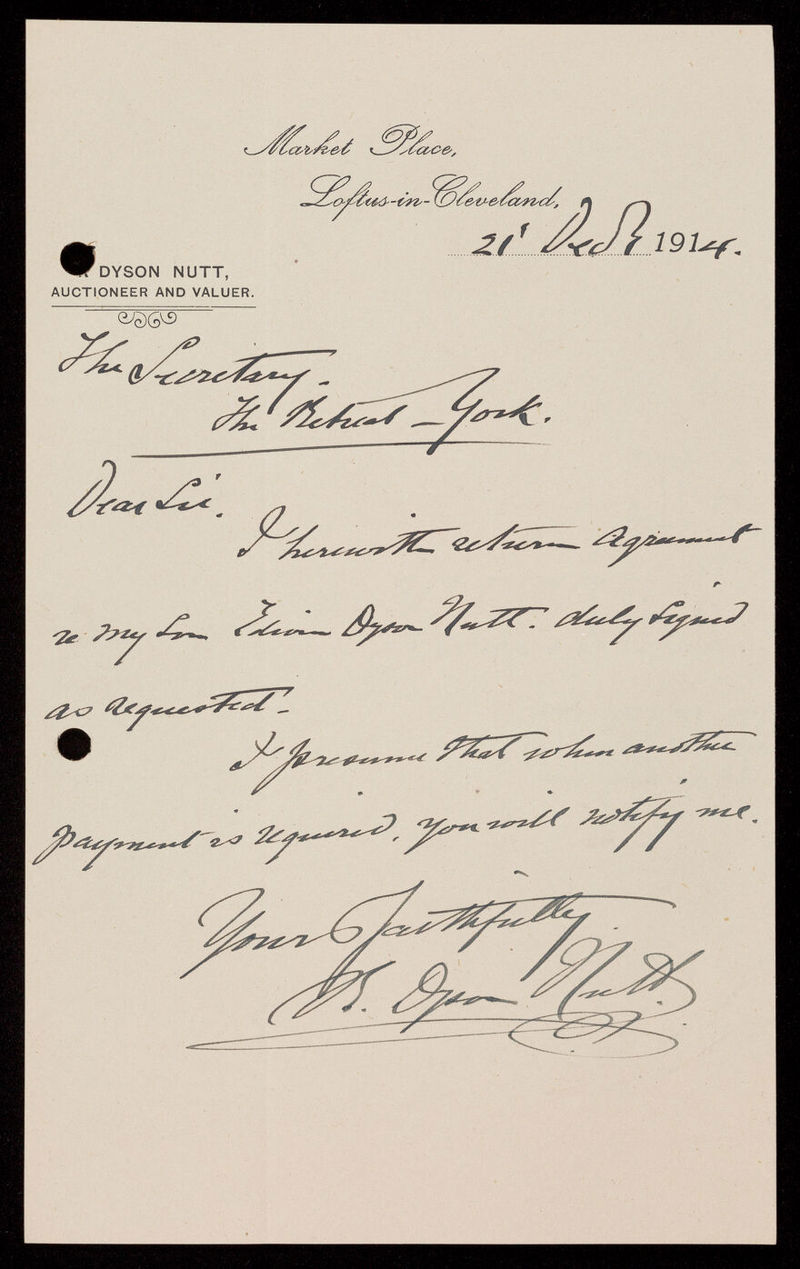 Market Place,
Loftus-in-Cleveland,
21st Decr 1914.
DYSON NUTT,
AUCTIONEER AND VALUER.
The Secretary.
The Retreat - York.
Dear Sir.
I herewith return Agreement
re my Son Edwin Dyson Nutt. duly signed
as requested -
I presume that when another
payment is required, you will notify me.
Yours Faithfully
R. Dyson Nutt.